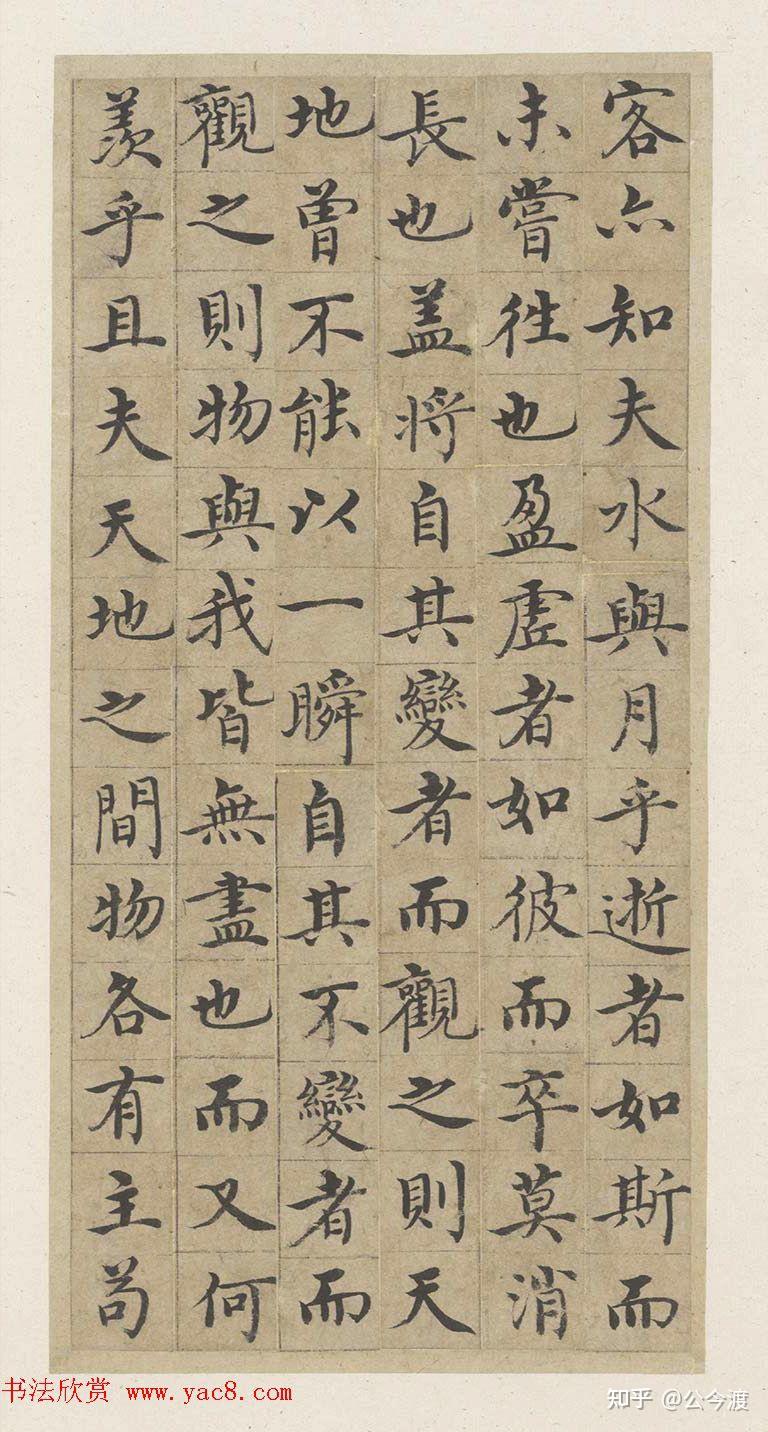 客亦知夫水與月乎逝者如斯而
未嘗往也盈虛者如彼而卒莫消
長也蓋將自其變者而觀之則天
地曾不能以一瞬自其不變者而
觀之則物與我皆無盡也而又何
羨乎且夫天地之間物各有主苟
书法欣赏 www.yac8.com
知乎 @公今渡